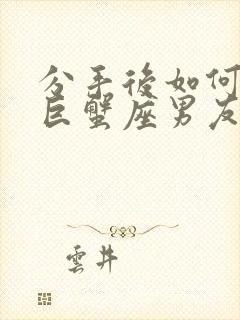 分手後如何
巨蟹座男友
雲井